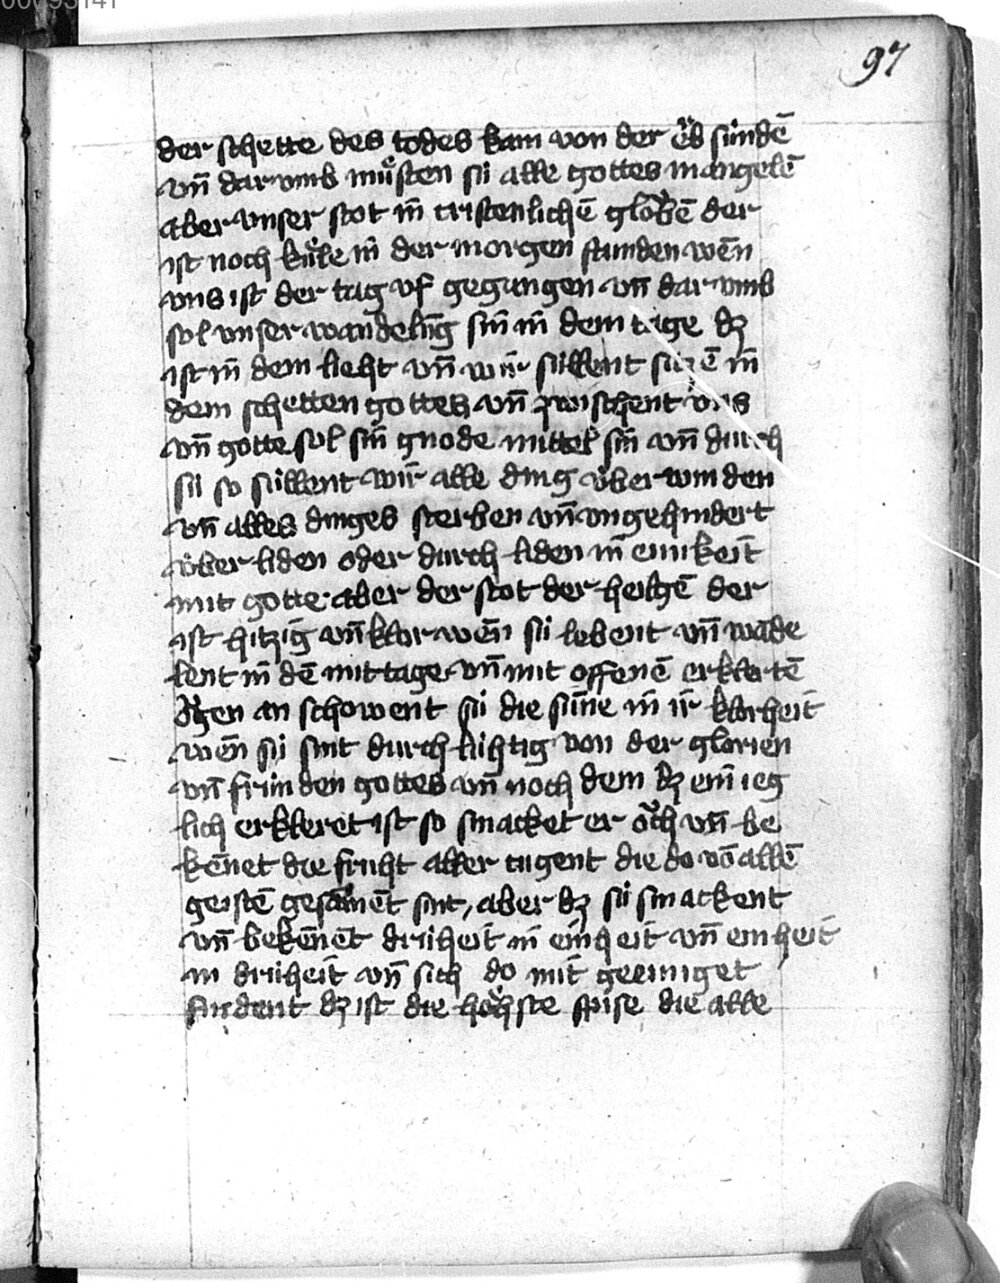 00093141
97
der schette des todes kam von der erb sündē
vn̄ dar vmb muͤsten sü alle gottes mangelē
aber vnser stot in̄ cristenlichē gloͮbē der
ist noch kuͤle in̄ der morgen stunden wēn
vns ist der tag vf gegangen vn̄ dar vmb
sol vnser wandelūg sin in̄ dem tage dz
ist in̄ dem lieht vn̄ wir süllent sitzē in̄
dem schetten gottes vn̄ zwischent vns
vn̄ gotte sol sin gnode mittel sin vn̄ durch
sü so süllent wir alle ding vͤber winden
vn̄ alles dinges sterben vn̄ vngehindert
vͤber liden oder durch liden in̄ einikeit
mit gotte. aber der stot der heilgē der
ist hitzig vn̄ klor wēn sü lebent vn̄ wāde
lent in̄ dē mittage vn̄ mit offenē erklertē
oͮgen an schowent sü die sūne in ir klorheit
wēn sü sint durch lühtig von der glorien
vn̄ fründen gottes vn̄ noch dem dz ein ieg
lich erkleret ist so smacket er oͮch vn̄ be
kēnet die fruht aller tugent die do vō allē
geistē gesamēt sint, aber dz sü smackent
vn̄ bekēnēt driheit in einheit vn̄ einheit
in driheit vn̄ sich do mit geeiniget
findent dz ist die hoͤhste spise die alle